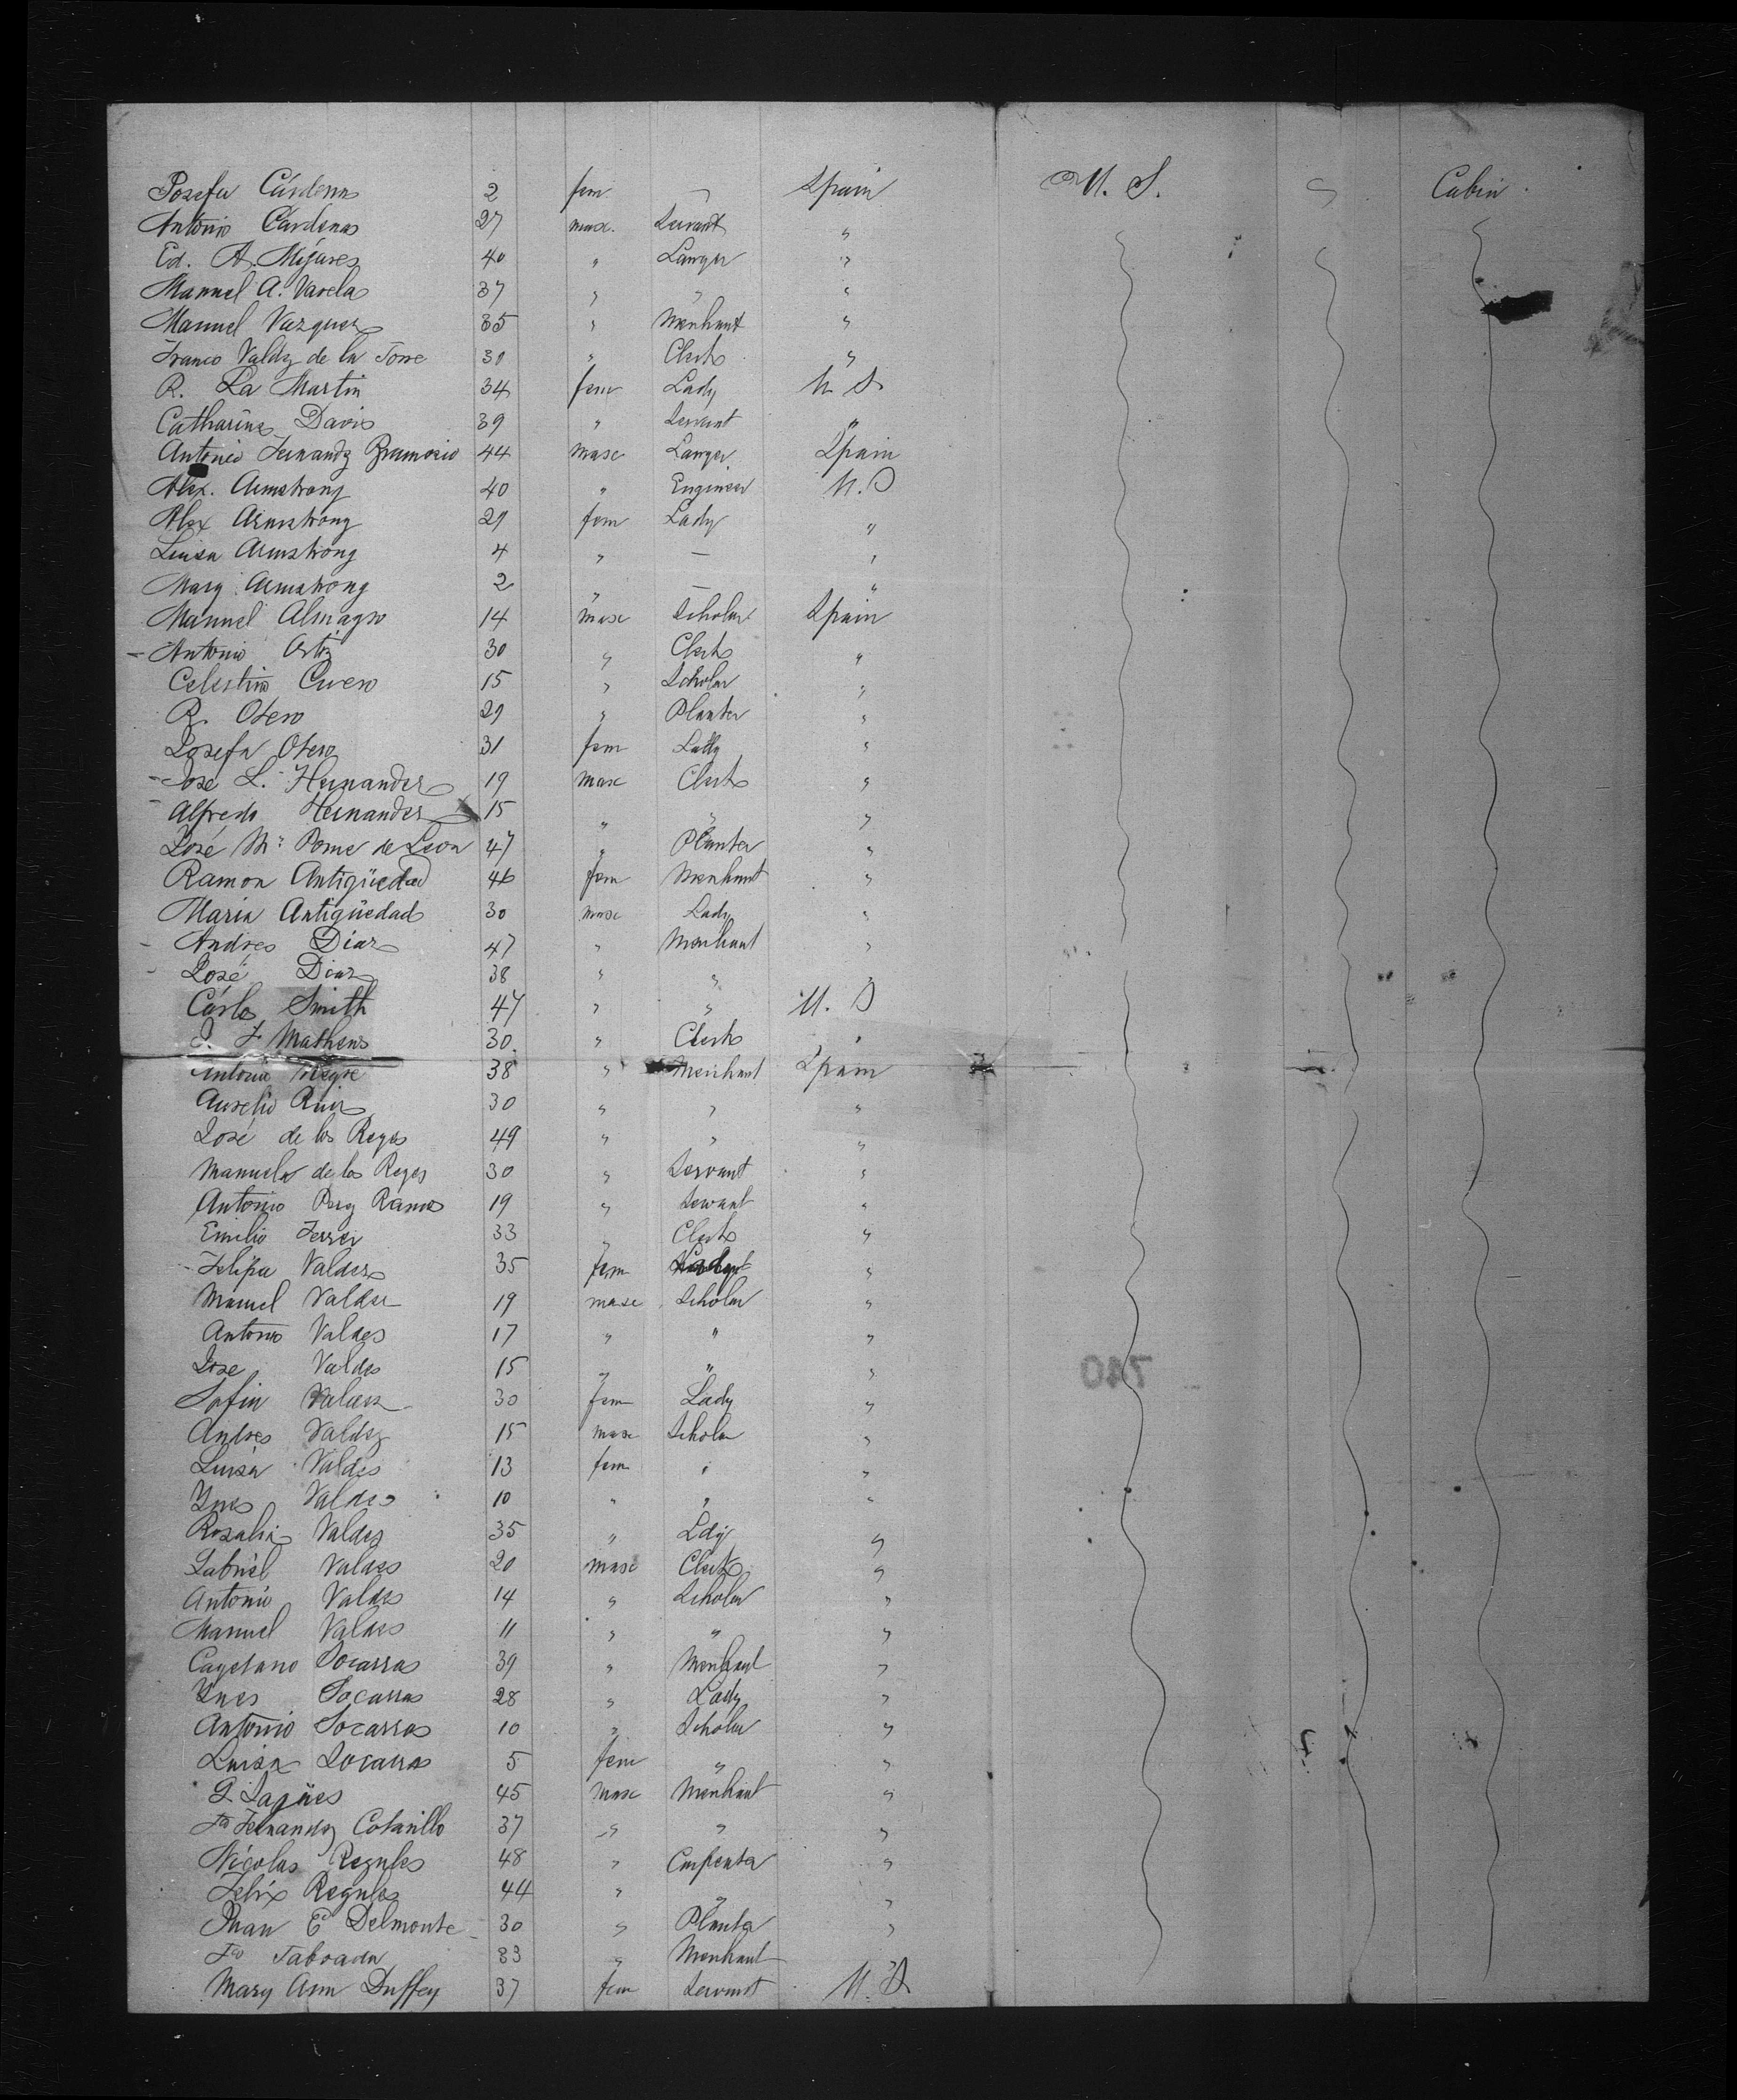 Josefa Cárdenas 2 fem — Spain U. S. Cabin
Antonio Cárdenas 27 masc. Servant "
Ed. A. Mijares 40 " Lawyer "
Manuel A. Varela 37 " " "
Manuel Vazquez 35 " Merchant "
Franco Valdz de la Torre 30 " Clerk "
R. La Martin 34 fem Lady U S
Catharine Davis 39 " Servant "
Antonio Fernandz Bramosio 44 masc Lawyer Spain
Alex. Armstrong 40 " Engineer U. S
Alex Armstrong 29 fem Lady "
Luisa Armstrong 4 " — "
Mary Armstrong 2 " — "
Manuel Almagro 14 masc Scholar Spain
- Antonio Ortiz 30 " Clerk "
Celestino Cuero 15 " Scholar "
R. Otero 29 " Planter "
Josefa Otero 31 fem Lady "
- José L. Hernandez 19 masc Clerk "
- Alfredo Hernandez 15 " " "
José Ma Ponce de Leon 47 " Planter "
Ramon Antigüedad 46 fem Merchant "
Maria Antigüedad 30 masc Lady "
- Andres Diaz 47 " Merchant "
- José Diaz 38 " " "
Cárlos Smith 47 " " U. S
J. F Mathews 30 " Clerk "
Antonio 38 " Merchant Spain
Aurelio Ruiz 30 " " "
José de los Reyes 49 " " "
Manuela de los Reyes 30 " Servant "
Antonio Perz Ramos 19 " Servant "
Emilio Ferrer 33 " Clerk "
- Felipa Valdez 35 fem Lady "
Manuel Valdez 19 masc Scholar "
Antonio Valdes 17 " " "
Jose Valdes 15 " " "
Sofia Valdez 30 fem Lady "
Andres Valdez 15 masc Scholar "
Luisa Valdes 13 fem " "
Ynes Valdes 10 " " "
Rosalia Valdes 35 " Ldy "
Gabriel Valdes 20 masc Clerk "
Antonio Valdes 14 " Scholar "
Manuel Valdes 11 " " "
Cayetano Socarras 39 " Merchant "
Ynes Socarras 28 " Lady "
Antonio Socarras 10 " Scholar "
Luisa Socarras 5 fem " "
G. Lagües 45 masc Merchant "
Fo Fernandez Cotarillo 37 " " "
Nicolas Regules 48 " Carpenter "
Felix Regules 44 " " "
Juan E Delmonte 30 " Planter "
Fco Taboada 33 " Merchant
Mary Ann Duffey 37 fem Servant U. S
740